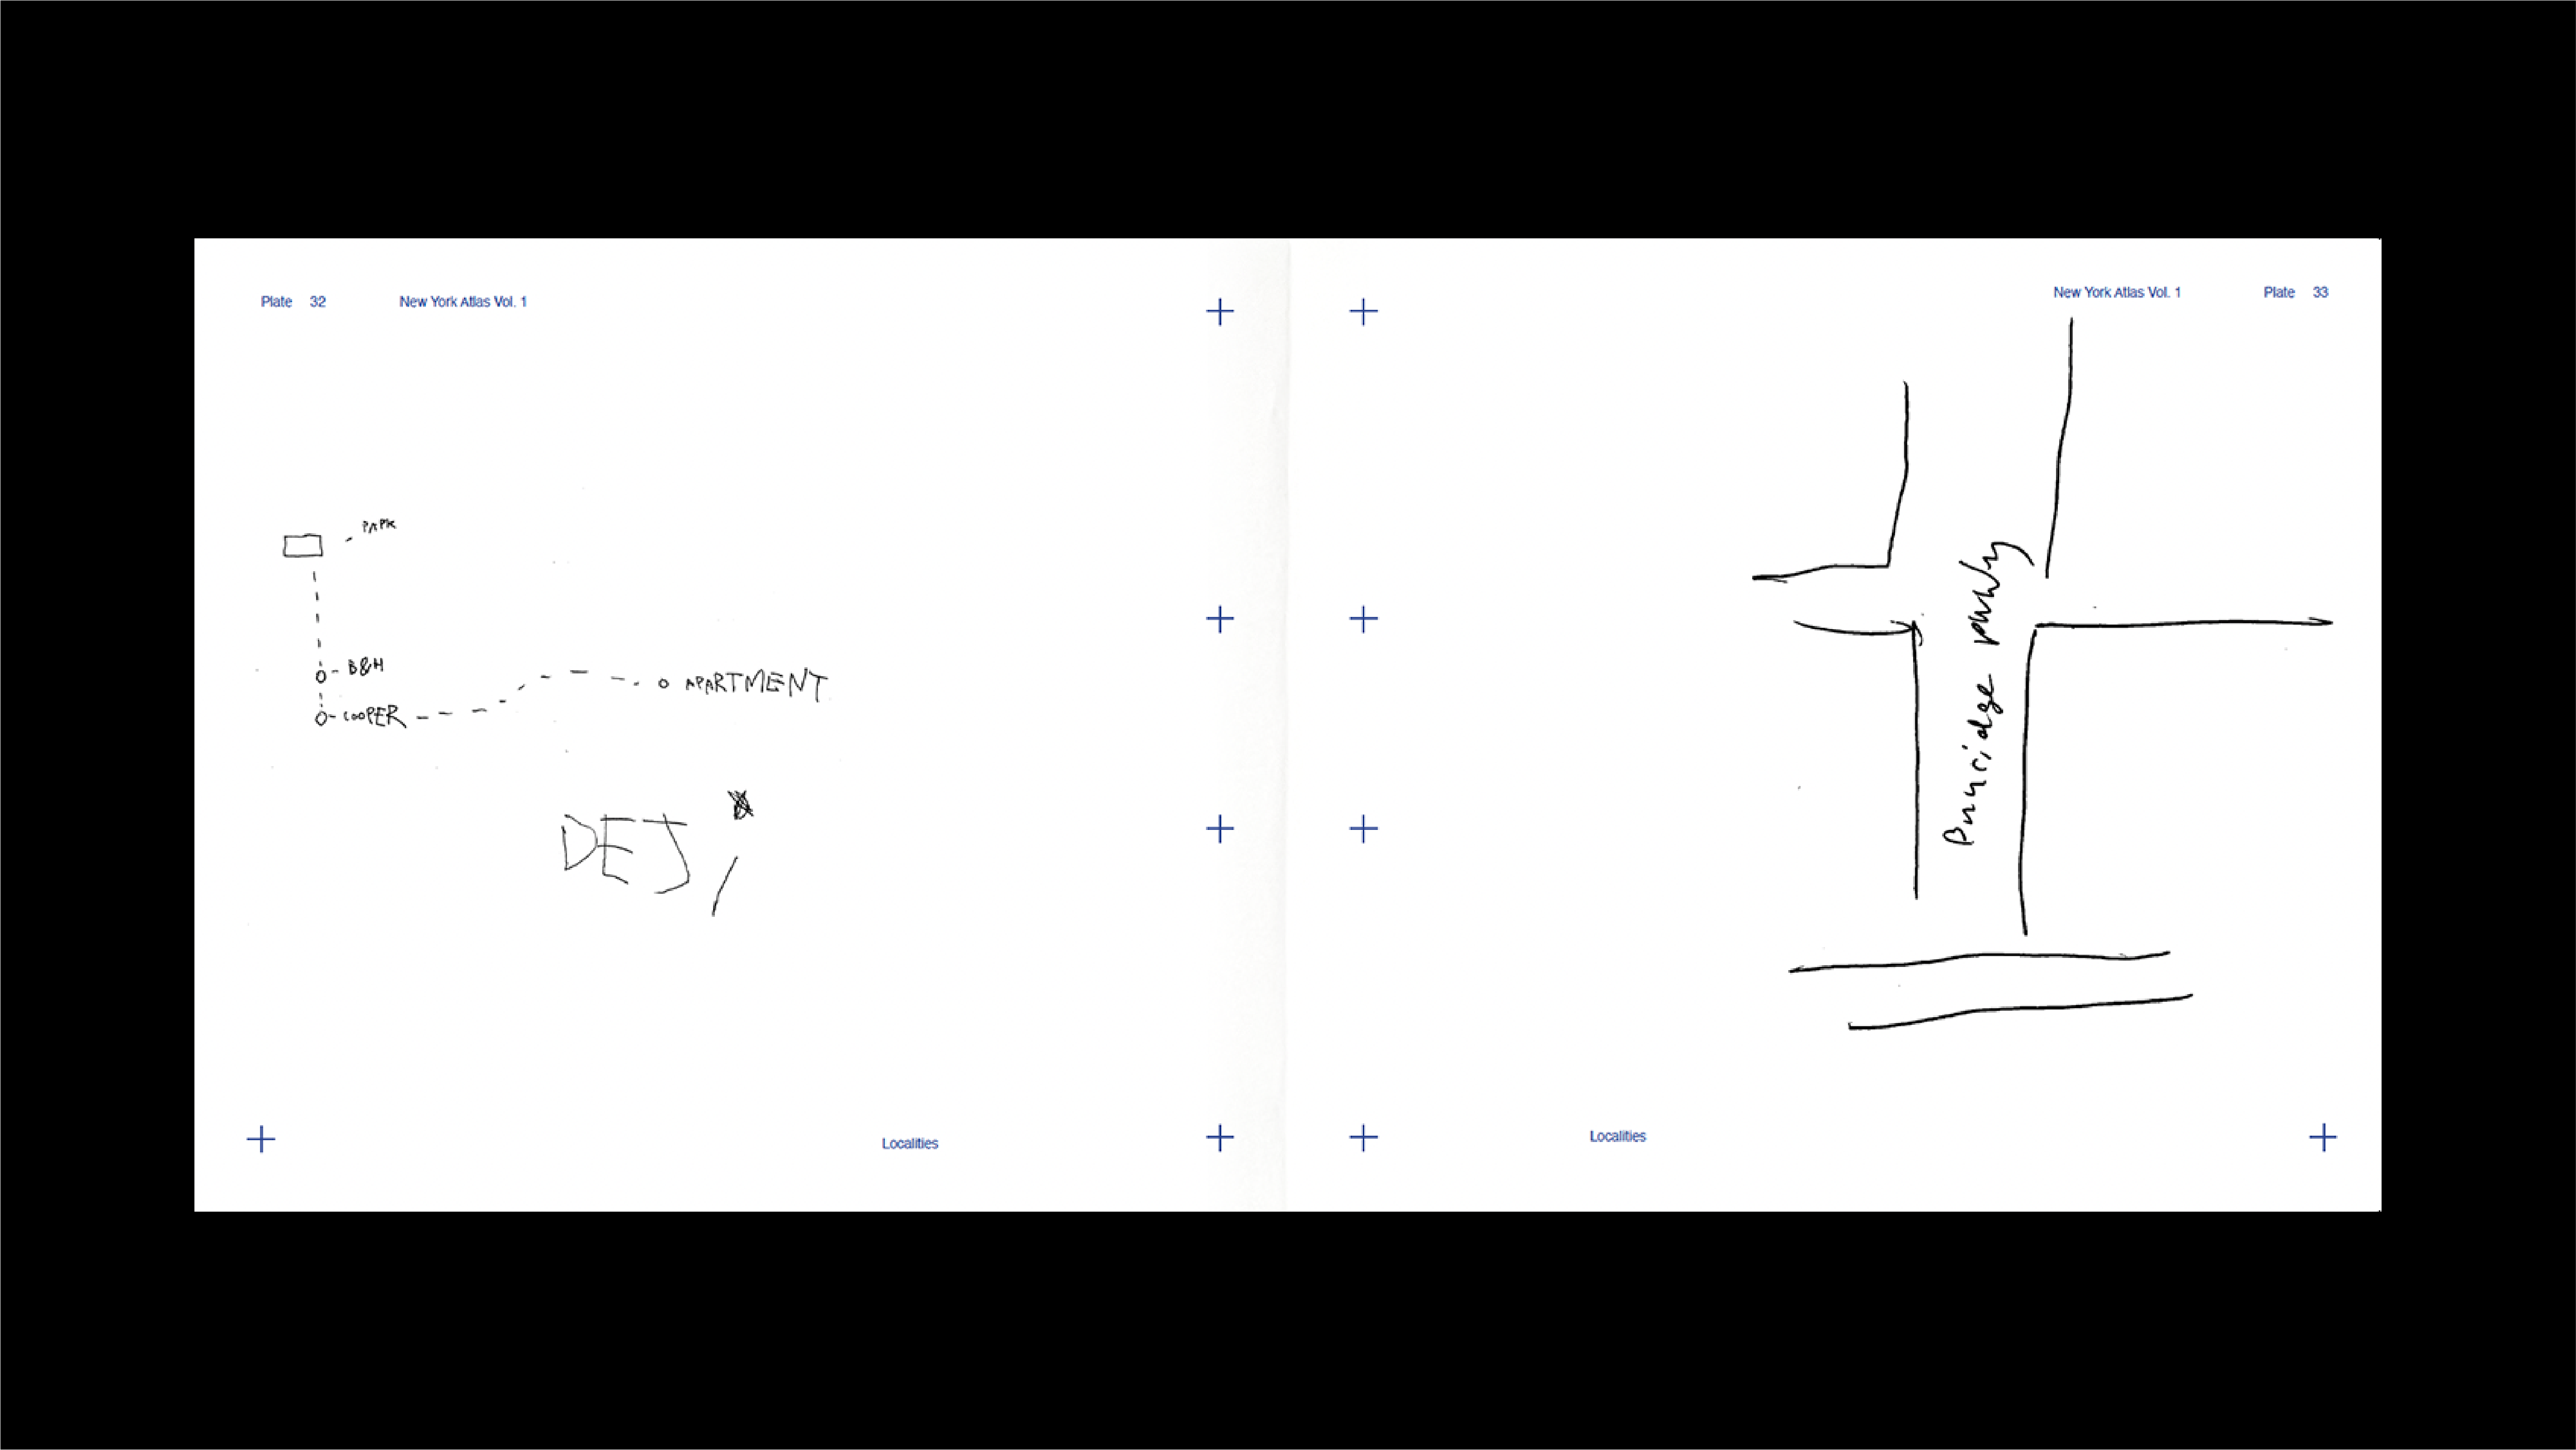 Plate 32 New York Atlas Vol. 1
PARK
B&H
COOPER
APARTMENT
DEJ
Localities
New York Atlas Vol. 1 Plate 33
Localities